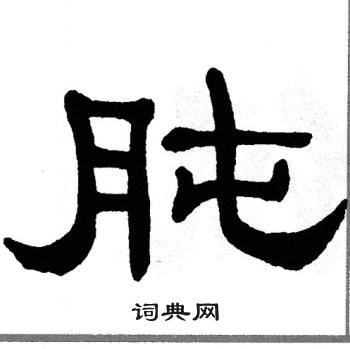 肫
词典网